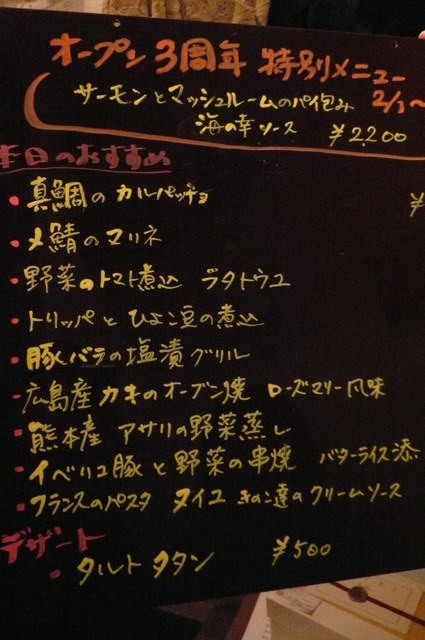 オープン3周年 特別メニュー
2/1〜
サーモンとマッシュルームのパイ包み
海の幸ソース ¥2200
本日のおすすめ
・真鯛のカルパッチョ ¥
・〆鯖のマリネ
・野菜のトマト煮込 ラタトウユ
・トリッパとひよこ豆の煮込
・豚バラの塩漬グリル
・広島産カキのオーブン焼 ローズマリー風味
・熊本産 アサリの野菜蒸し
・イベリコ豚と野菜の串焼 バターライス添
・フランスのパスタ ヌイユ きのこ達のクリームソース
デザート
・タルトタタン ¥500